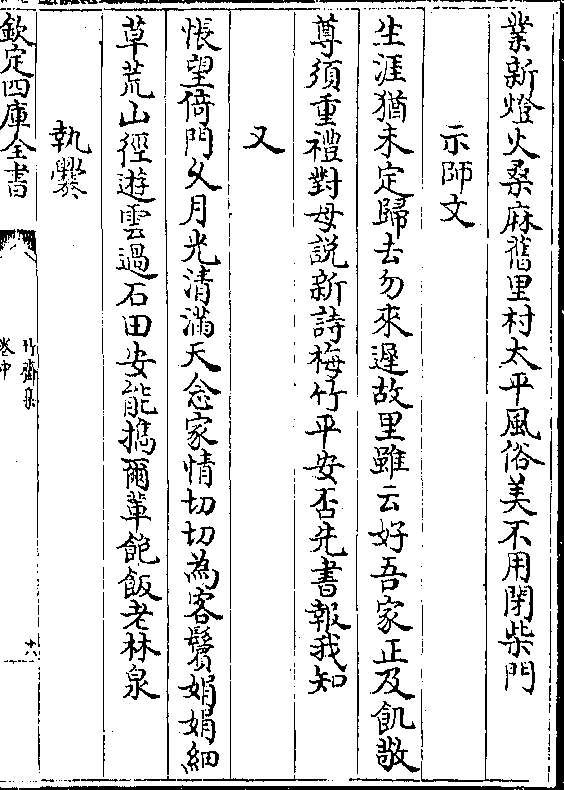 業新燈火桑麻舊里村太平風俗美不用閉柴門
示師文
生涯猶未定歸去勿來遲故里雖云好吾家正及飢敬
尊須重禮對母説新詩梅竹平安否先書報我知
又
悵望倚門久月光清滿天念家情切切為客鬢娟娟細
草荒山徑遊雲過石田安能搗爾輩飽飯老林泉
執爨
欽定四庫全書
竹齋集
卷中
十六